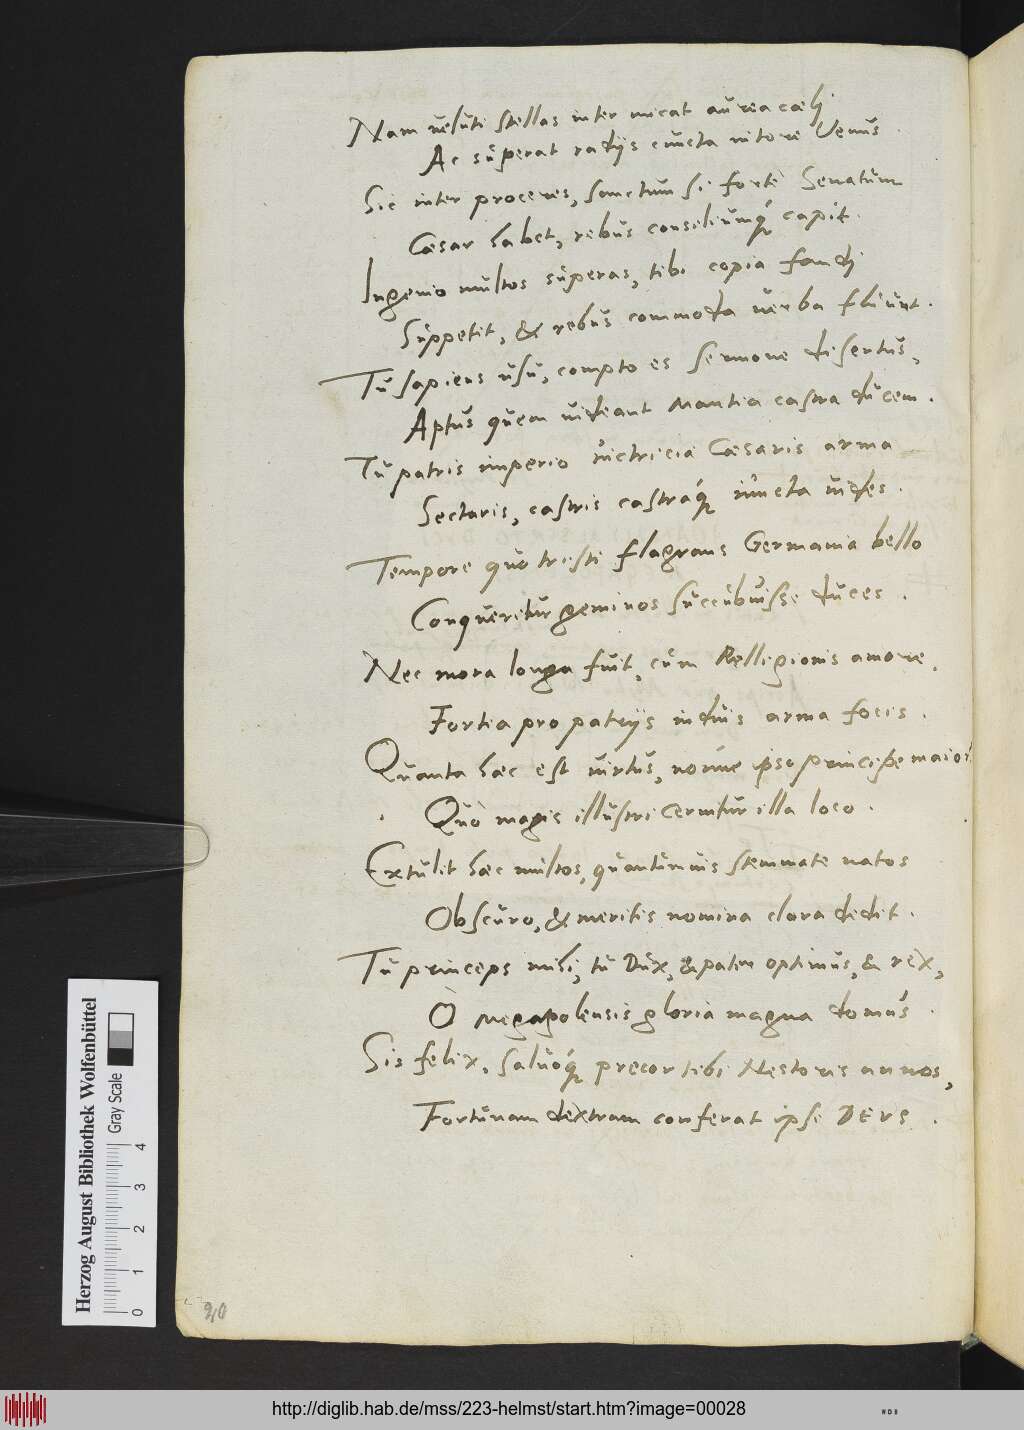 Nam veluti stellas inter micat aurea cœli
Ac superat radijs cuncta nitore Venus.
Sic inter proceres, sanctum si fortè Senatum
Cæsar habet, rebus consiliumq́ capit.
Ingenio multos superas, tibi copia fandi
Suppetit, & rebus commoda verba fluunt.
Tu sapiens usu, compto es sermone disertus,
Aptus quem videant Mantia castra ducem.
Tu patris imperio victricia Cæsaris arma
Sectaris, castris castráq́ iuncta vides.
Tempore quo tristi flagrans Germania bello
Conqueritur geminos succubuisse duces.
Nec mora longa fuit, cùm Relligionis amore,
Fortia pro patrijs induis arma focis.
Quanta hæc est virtus, norúnt ipso principe maior
Quò magis illustri cernitur illa loco.
Extulit hæc multos, quantumuis stemmate natos
Obscuro, & meritis nomina clara dedit.
Tu princeps mihi, tu Dux, & pater optimus, & rex,
O Megapolensis gloria magna domus.
Sis felix, saluóq́ precor tibi Nestoris annos,
Fortunam dextram conferat ipse DEVS.
20
Herzog August Bibliothek Wolfenbüttel
Gray Scale
0 1 2 3 4
http://diglib.hab.de/mss/223-helmst/start.htm?image=00028